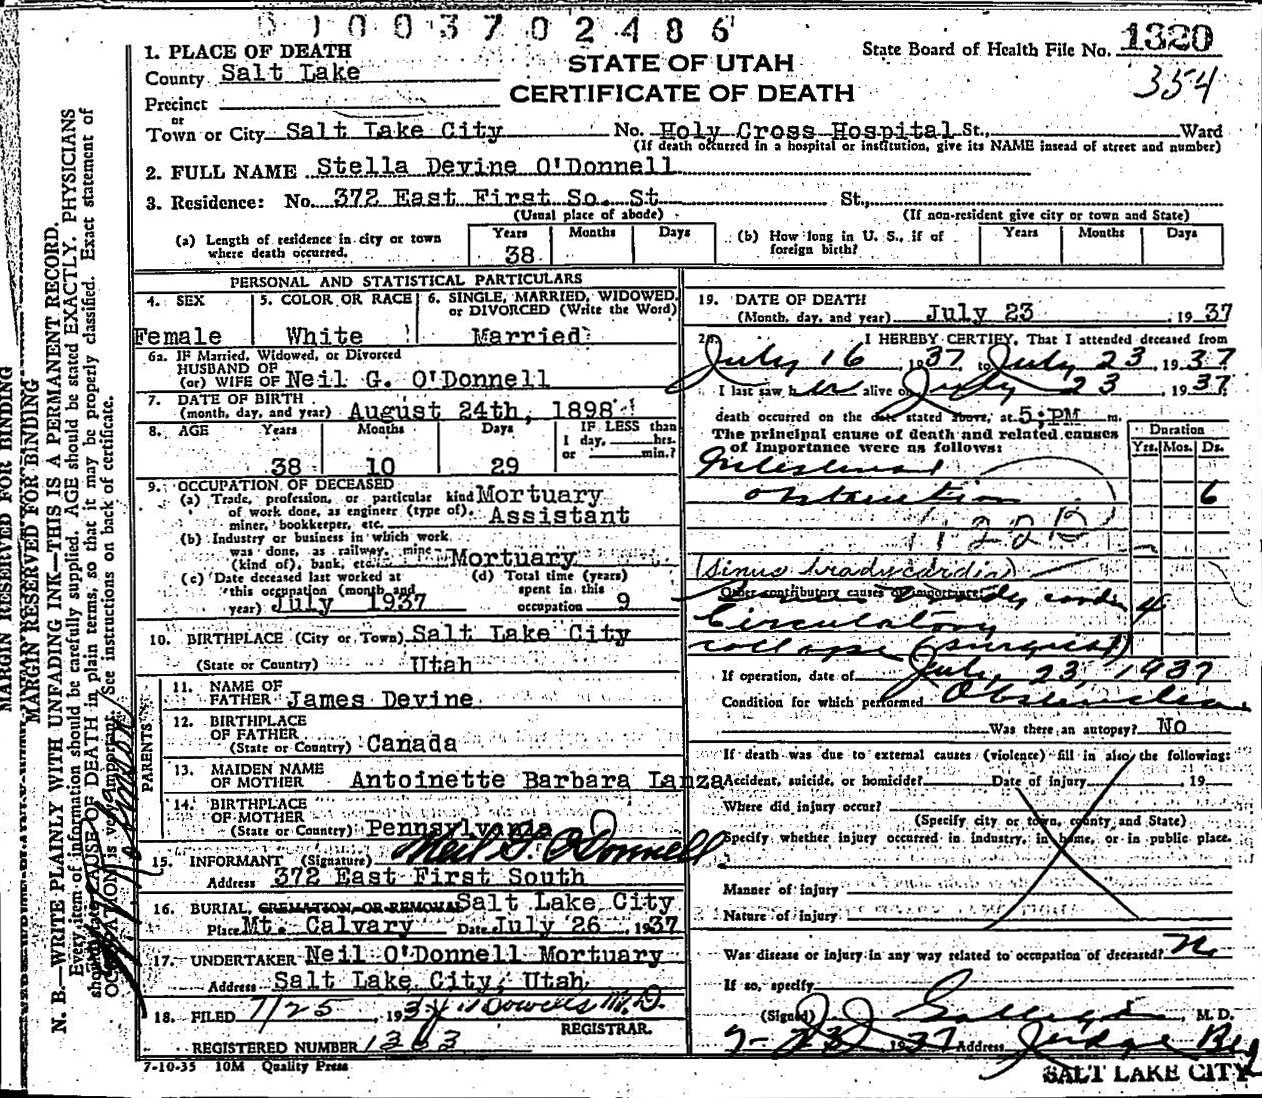 0 1 0 0 3 7 0 2 4 8 6
1. PLACE OF DEATH
County Salt Lake
Precinct
or
Town or City Salt Lake City
STATE OF UTAH
CERTIFICATE OF DEATH
State Board of Health File No. 1320
354
No. Holy Cross Hospital St., Ward
(If death occurred in a hospital or institution, give its NAME insead of street and number)
2. FULL NAME Stella Devine O'Donnell
3. Residence: No. 372 East First So. St St.,
(Usual place of abode) (If non-resident give city or town and State)
(a) Length of residence in city or town where death occurred. Years 38 Months Days
(b) How long in U. S., if of foreign birth? Years Months Days
PERSONAL AND STATISTICAL PARTICULARS
4. SEX Female
5. COLOR OR RACE White
6. SINGLE, MARRIED, WIDOWED, or DIVORCED (Write the Word) Married
6a. IF Married, Widowed, or Divorced
HUSBAND OF
(or) WIFE OF Neil G. O'Donnell
7. DATE OF BIRTH
(month, day, and year) August 24th, 1898
8. AGE Years Months Days IF LESS than
1 day, hrs.
or min.?
38 10 29
9. OCCUPATION OF DECEASED
(a) Trade, profession, or particular kind Mortuary
of work done, as engineer (type of), Assistant
miner, bookkeeper, etc.
(b) Industry or business in which work
was done, as railway, mine Mortuary
(kind of), bank, etc.
(c) Date deceased last worked at
this occupation (month and
year) July 1937
(d) Total time (years)
spent in this
occupation 9
10. BIRTHPLACE (City or Town) Salt Lake City
(State or Country) Utah
PARENTS
11. NAME OF
FATHER James Devine
12. BIRTHPLACE
OF FATHER
(State or Country) Canada
13. MAIDEN NAME
OF MOTHER Antoinette Barbara Lanza
14. BIRTHPLACE
OF MOTHER
(State or Country) Pennsylvania
15. INFORMANT (Signature) Neil G. O'Donnell
Address 372 East First South
16. BURIAL, CREMATION, OR REMOVAL Salt Lake City
Place Mt. Calvary Date July 26, 1937
17. UNDERTAKER Neil O'Donnell Mortuary
Address Salt Lake City, Utah
18. FILED 7/25, 193 M.D.
REGISTRAR.
REGISTERED NUMBER 1363
7-10-35 10M Quality Press
19. DATE OF DEATH
(Month, day, and year) July 23, 1937
20. I HEREBY CERTIFY, That I attended deceased from
July 16 1937 to July 23, 1937
I last saw her alive on July 23, 1937
death occurred on the date stated above, at 5;PM m.
The principal cause of death and related causes
of Importance were as follows:
Duration
Yrs. Mos. Ds.
Intestinal
obstruction 6
122B
(Sinus bradycardia)
Other contributory causes of importance:
Sinus Brady cardia 4
Circulatory
collapse (surgical)
If operation, date of July 23, 1937
Condition for which performed Obstruction
Was there an autopsy? No
If death was due to external causes (violence) fill in also the following:
Accident, suicide, or homicide? Date of injury , 19
Where did injury occur?
(Specify city or town, county and State)
Specify whether injury occurred in industry, in home, or in public place.
Manner of injury
Nature of injury
Was disease or injury in any way related to occupation of deceased? No
If so, specify
(Signed) M. D.
7-23 1937 Address Judge
SALT LAKE CITY
MARGIN RESERVED FOR BINDING
MARGIN RESERVED FOR BINDING
N. B.—WRITE PLAINLY WITH UNFADING INK—THIS IS A PERMANENT RECORD.
Every item of information should be carefully supplied. AGE should be stated EXACTLY. PHYSICIANS
should state CAUSE OF DEATH in plain terms, so that it may be properly classified. Exact statement of
OCCUPATION is very important. See instructions on back of certificate.